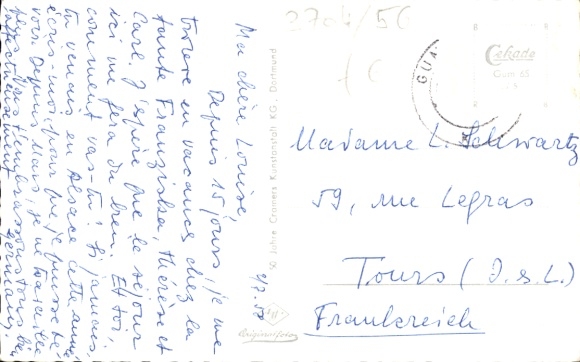 Ma chère Louise,
Depuis 15 jours, je me
trouve en vacances chez la
tante Franziska, Thérèse et
Care. J'espère que le séjour
ici me fera du bien. Et toi,
comment vas-tu? Si jamais
tu venais en Alsace cette année
écris-moi, pour que je puisse te
voir. Depuis Mars, je ne travaille
pas. Nous t'embrassons tous bien
affectueusement
50 Jahre Cramers Kunstanstalt KG., Dortmund
Originalfoto
Cekade
Madame L. Schwartz
59, rue Legras
Tours (I. e. L.)
Frankreich